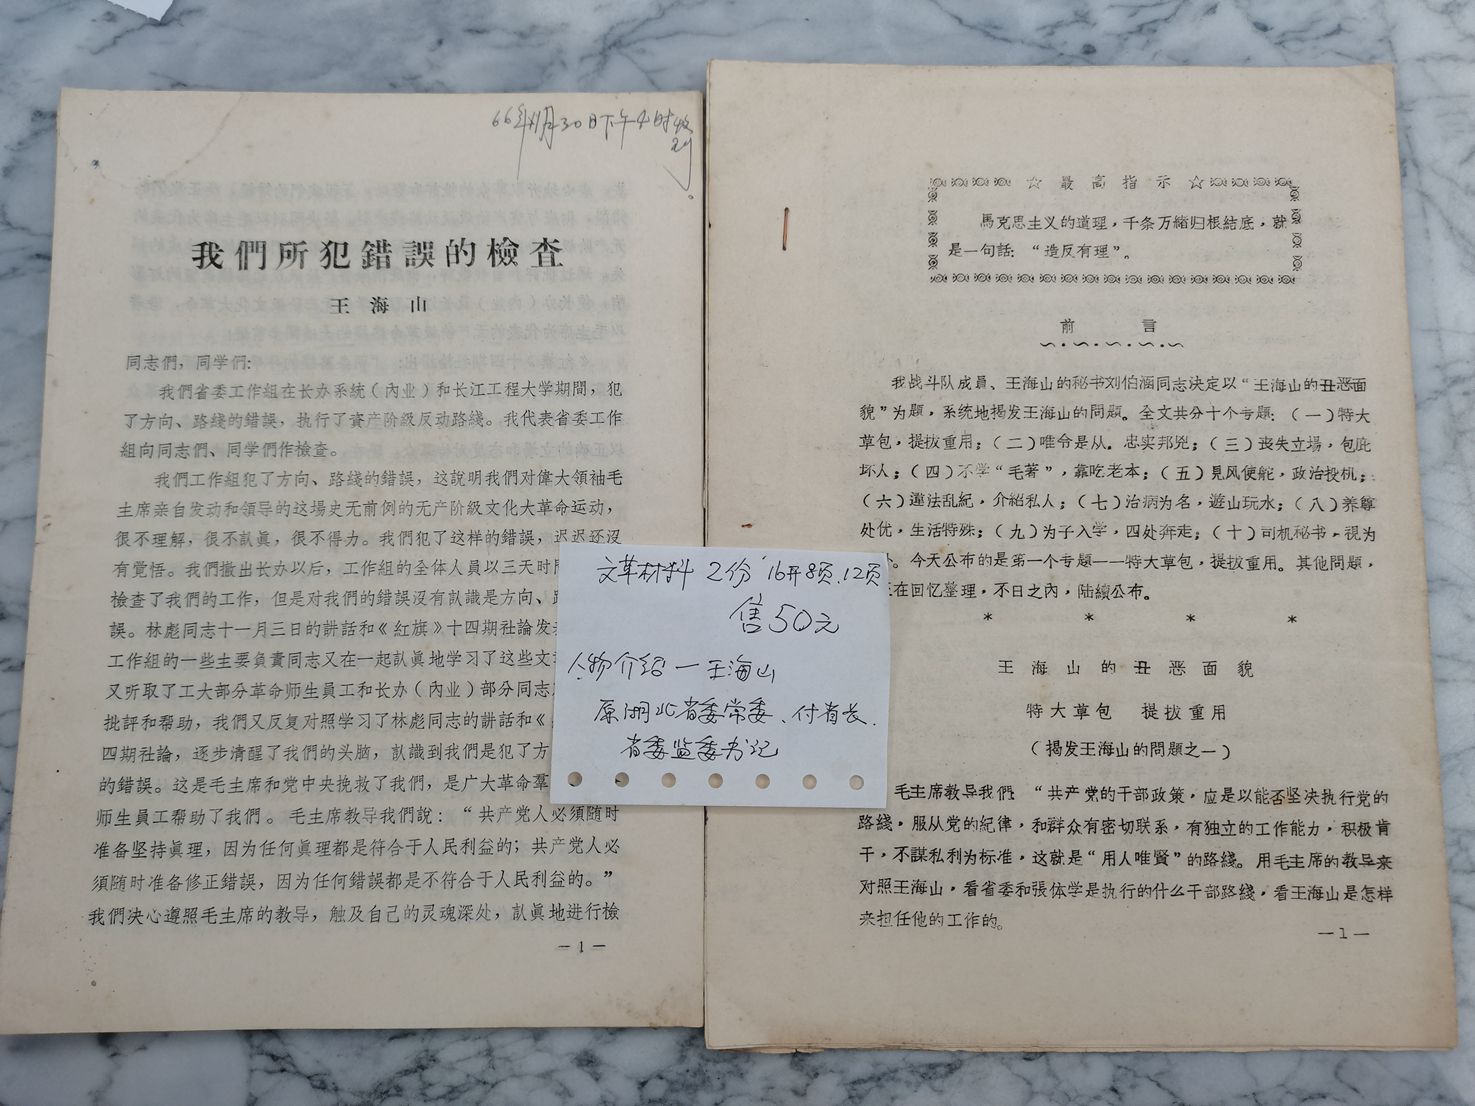 66年11月30日下午4时收到
我們所犯錯誤的檢查
王海山
同志們，同学們：
我們省委工作組在长办系統（內业）和长江工程大学期間，犯
了方向、路綫的錯誤，执行了資产阶級反动路綫。我代表省委工作
組向同志們、同学們作檢查。
我們工作組犯了方向、路綫的錯誤，这說明我們对偉大領袖毛
主席亲自发动和領导的这場史无前例的无产阶級文化大革命运动，
很不理解，很不認眞，很不得力。我們犯了这样的錯誤，迟迟还沒
有覚悟。我們撤出长办以后，工作組的全体人員以三天时
檢查了我們的工作，但是对我們的錯誤沒有認識是方向、
誤。林彪同志十一月三日的讲話和《紅旗》十四期社論发
工作組的一些主要負責同志又在一起認眞地学习了这些文
又听取了工大部分革命师生員工和长办（內业）部分同志
批評和帮助，我們又反复对照学习了林彪同志的讲話和《
四期社論，逐步清醒了我們的头脑，認識到我們是犯了方
的錯誤。这是毛主席和党中央挽救了我們，是广大革命羣
师生員工帮助了我們。毛主席教导我們說：“共产党人必須随时
准备坚持眞理，因为任何眞理都是符合于人民利益的；共产党人必
須随时准备修正錯誤，因为任何錯誤都是不符合于人民利益的。”
我們决心遵照毛主席的教导，触及自己的灵魂深处，認眞地进行檢
—1—
☆ 最高指示 ☆
馬克思主义的道理，千条万緒归根結底，就
是一句話：“造反有理”。
前言
我战斗队成員、王海山的秘书刘伯涵同志决定以“王海山的丑恶面
貌”为題，系統地揭发王海山的問題。全文共分十个专題：（一）特大
草包，提拔重用；（二）唯令是从。忠实邦兇；（三）丧失立場，包庇
坏人；（四）不学“毛著”，靠吃老本；（五）見风使舵，政治投机；
（六）違法乱紀，介紹私人；（七）治病为名，遊山玩水；（八）养尊
处优，生活特殊；（九）为子入学，四处奔走；（十）司机秘书，視为
。今天公布的是第一个专題——特大草包，提拔重用。其他問題，
在回忆整理，不日之內，陆續公布。
* * * *
王海山的丑恶面貌
特大草包 提拔重用
（揭发王海山的問題之一）
毛主席教导我們：“共产党的干部政策，应是以能否坚决执行党的
路綫，服从党的紀律，和群众有密切联系，有独立的工作能力，积极肯
干，不謀私利为标准，这就是“用人唯賢”的路綫。用毛主席的教导来
对照王海山，看省委和張体学是执行的什么干部路綫，看王海山是怎样
来担任他的工作的。
—1—
文革材料 2份 16开8页、12页
售50元
人物介绍—王海山
原湖北省委常委、付省长、
省委监委书记